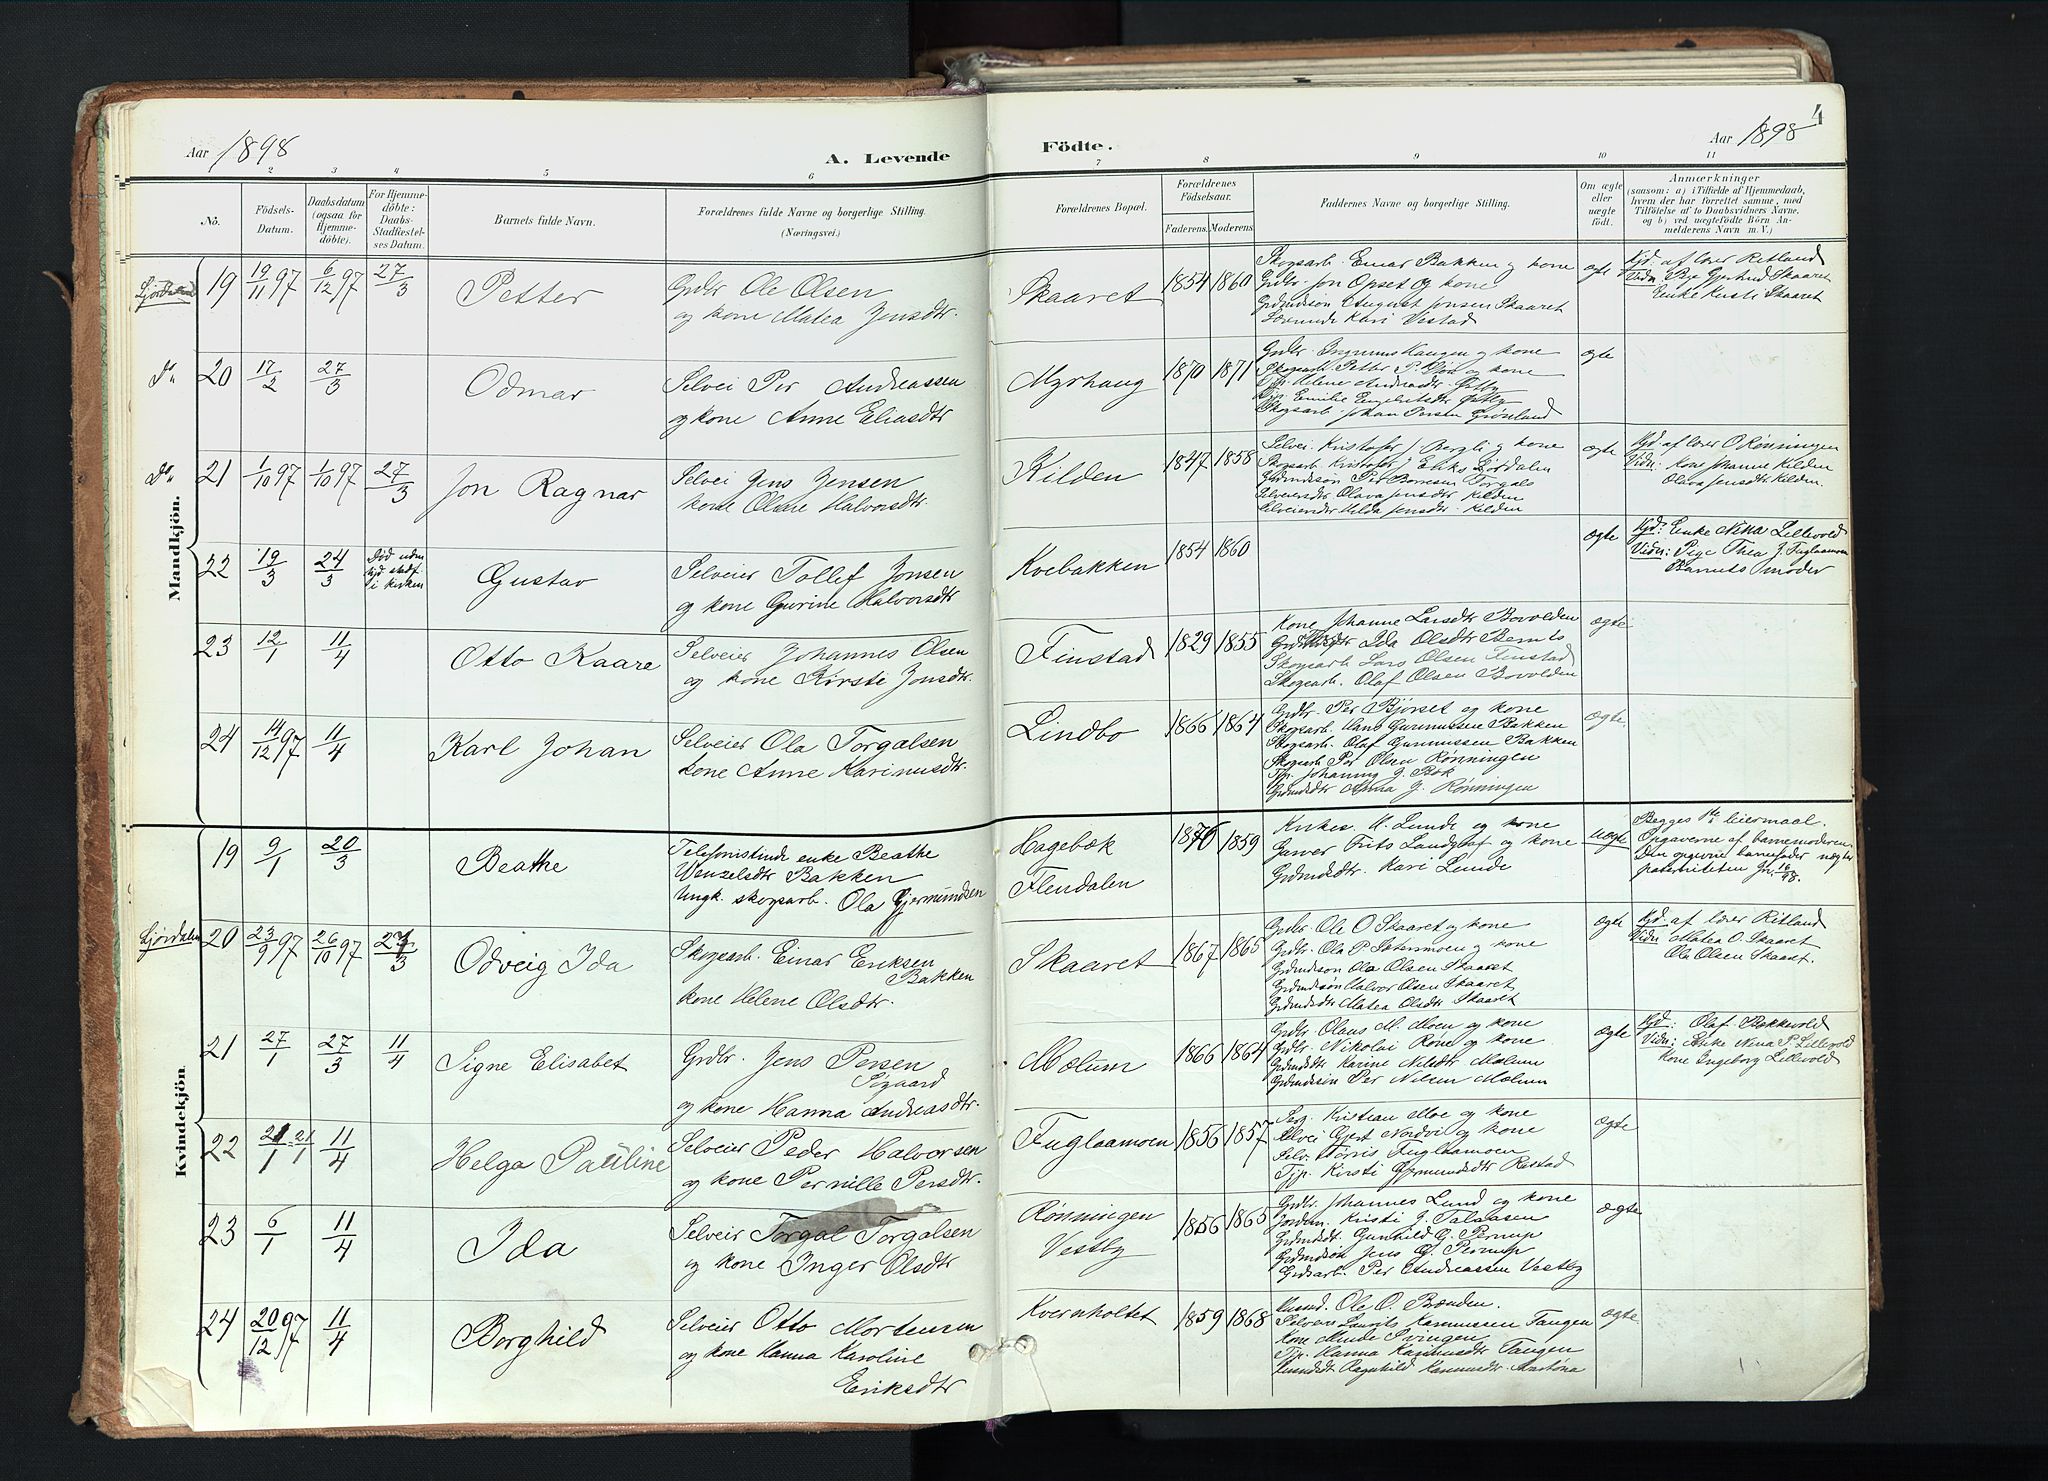 Aar 1898
A. Levende
Födte.
Aar 1898
4
2 3 4 5 6 7 8 9 10 11
No.
Födsels-Datum.
Daabsdatum (ogsaa for Hjemme-döbte).
For Hjemme-döbte: Daabs-Stadfæstel-ses Datum.
Barnets fulde Navn.
Forældrenes fulde Navne og borgerlige Stilling. (Næringsvei.)
Forældrenes Bopæl.
Forældrenes Födselsaar.
Faderens. Moderens.
Faddernes Navne og borgerlige Stilling.
Om ægte eller uægte födt.
Anmærkninger
(saasom: a) i Tilfælde af Hjemmedaab, hvem der har forrettet samme, med Tilföielse af to Daabsvidners Navne, og b) ved uægtefödte Börn An-melderens Navn m. V.)
Mandkjön.
Ljördalen 19 19/11 97 6/12 97 27/3 Petter
Grdbr. Ole Olsen
og kone Matea Jensdtr.
Skaaret 1854 1860
Skogsarb. Einar Bakken og kone
Grdbr. Jon Opset og kone
Grdmdsön August Jensen Skaaret
Lærerinde Kari Vestad
ægte
Hjd. af lærer Ritland
Vidn: Pige Gjertrud Skaaret
Enke Kirsti Skaaret
Do 20 17/2 27/3 Odmar
Selvei Per Andreassen
og kone Anne Eliasdtr
Myrhaug 1870 1871
Grdbr. Ingmund Haugen og kone
Skogsarb. Petter
Tjp. Helene Andreasdtr. Østby
Tjp. Emilie Engebretsdtr Østby
Skogsarb. Johan Persen Grönland
ægte
Do 21 1/10 97 1/10 97 27/3 Jon Ragnar
Selvei Jens Jensen
kone Oline Halvorsdtr.
Kilden 1847 1858
Selvei. Kristofer J Bergli og kone
Skogsarb. Kristofer J Eriks Ljördalen
Grdmdssön Per Borresen Torgals
Selveiersdtr Olava Jensdtr. Kilden
Selveiersdtr Hilda Jensdtr. Kilden
ægte
Hjd. af lærer O Rønningen
Vidn: Kone Johanne Kilden
Olava Jensdtr Kilden.
22 19/3 24/3 Död uden hjd stadf i kirken Gustav
Selveier Tollef Jonsen
og kone Gurine Halvorsdtr
Kvebakken 1854 1860
ægte
Hjd: Enke Nina Lillevold
Vidn: Pige Thea J. Fuglaamoen
Barnets moder
23 12/1 11/4 Otto Kaare
Selveier Johannes Olsen
og kone Kirsti Jonsdtr.
Finstad 1829 1855
Kone Johanne Larsdtr Bovolden
Ida Olsdtr Bernts
Skogsarb Lars Olsen Finstad
Skogsarb. Olaf Olsen Bovolden
ægte
24 14/12 97 11/4 Karl Johan
Selveier Ola Torgalsen
kone Anne Karinusdtr.
Lindbo 1866 1864
Grdbr. Per Bjørset og kone
Skogsarb. Hans Gunnussen Bakken
Skogsarb. Olaf Gunnussen Bakken
Skogsarb Per Olsen Rønningen
Tjp. Johanne J. Bak
Grdmdsdtr Anna J. Rønningen
ægte
Kvindekjön.
19 9/1 20/3 Beathe
Telefonistinde enke Beathe
Wenzelsdtr Bakken
Ungk. skogsarb. Ola Gjermundsen
Hagebæk
Flendalen
1876 1859
Kirkes. H. Lunde og kone
Garver Frits Landgraf og kone
Grdmdsdtr. Kari Lunde
uægte
Begges 1ste leiermaal.
Opgaverne af barnemoderen.
Den opgivne barnefader nægter
paterniteten
Ljördalen 20 23/9 97 26/10 97 27/3 Odveig Ida
Skogsarb. Einar Eriksen
Bakken
kone Helene Olsdtr.
Skaaret 1867 1865
Grdbr. Ole O Skaaret og kone
Grdbr. Ola P Sætersmoen og kone
Grdmdssön Ola Olsen Skaaret
Grdmdssön Halvor Olsen Skaaret
Grdmdsdtr Matea Olsdtr Skaaret
ægte
Hjd. af lærer Ritland
Vidn Matea O. Skaaret
Ole Olsen Skaaret.
21 27/1 27/3 11/4 Signe Elisabet
Grdbr. Jens Persen
Sigaard
og kone Hanna Andreasdtr.
Mælum 1866 1864
Grdbr. Olaus M. Moen og kone
Grdbr. Nikolai Røne og kone
Grdmdsdtr Karine Nilsdtr Mælum
Grdmdssön Per Nilsen Mælum
ægte
Hjd: Olaf Bakkevold
Vidn: Enke Nina P Lillevold
Kone Ingeborg Lillevold
22 21/1 21/1 11/4 Helga Pauline
Selveier Peder Halvorsen
og kone Pernille Persdtr.
Fuglaamoen 1856 1857
Serg. Kristian Moe og kone
Selvei Gjert Nordvi og kone
Selv. Tørris Fuglaamoen
Tjp. Kirsti Gjermundsdtr Restad
ægte
23 6/1 11/4 Ida
Selveir Torgal Torgalsen
og kone Inger Olsdtr
Rønningen
Vestby
1856 1865
Grdbr. Johannes Lund og kone
Jordem. Kristi J. Talaasen
Grdmdsdtr. Gunhild G. Pernup
Grdmdssön Jens G. Pernup
Grdsarb. Per Andreassen Vestby
ægte
24 20/12 97 11/4 Borghild
Selveier Otto Mortensen
og kone Hanna Karoline
Eriksdtr
Kvernholtet 1859 1868
Husmd. Ole O. Brænden.
Selveier Laurits Rasmussen Tangen
Kone Minde Svingen
Tjp. Hanna Rasmusdtr Tangen
Ragnhild Rasmusdtr.
ægte